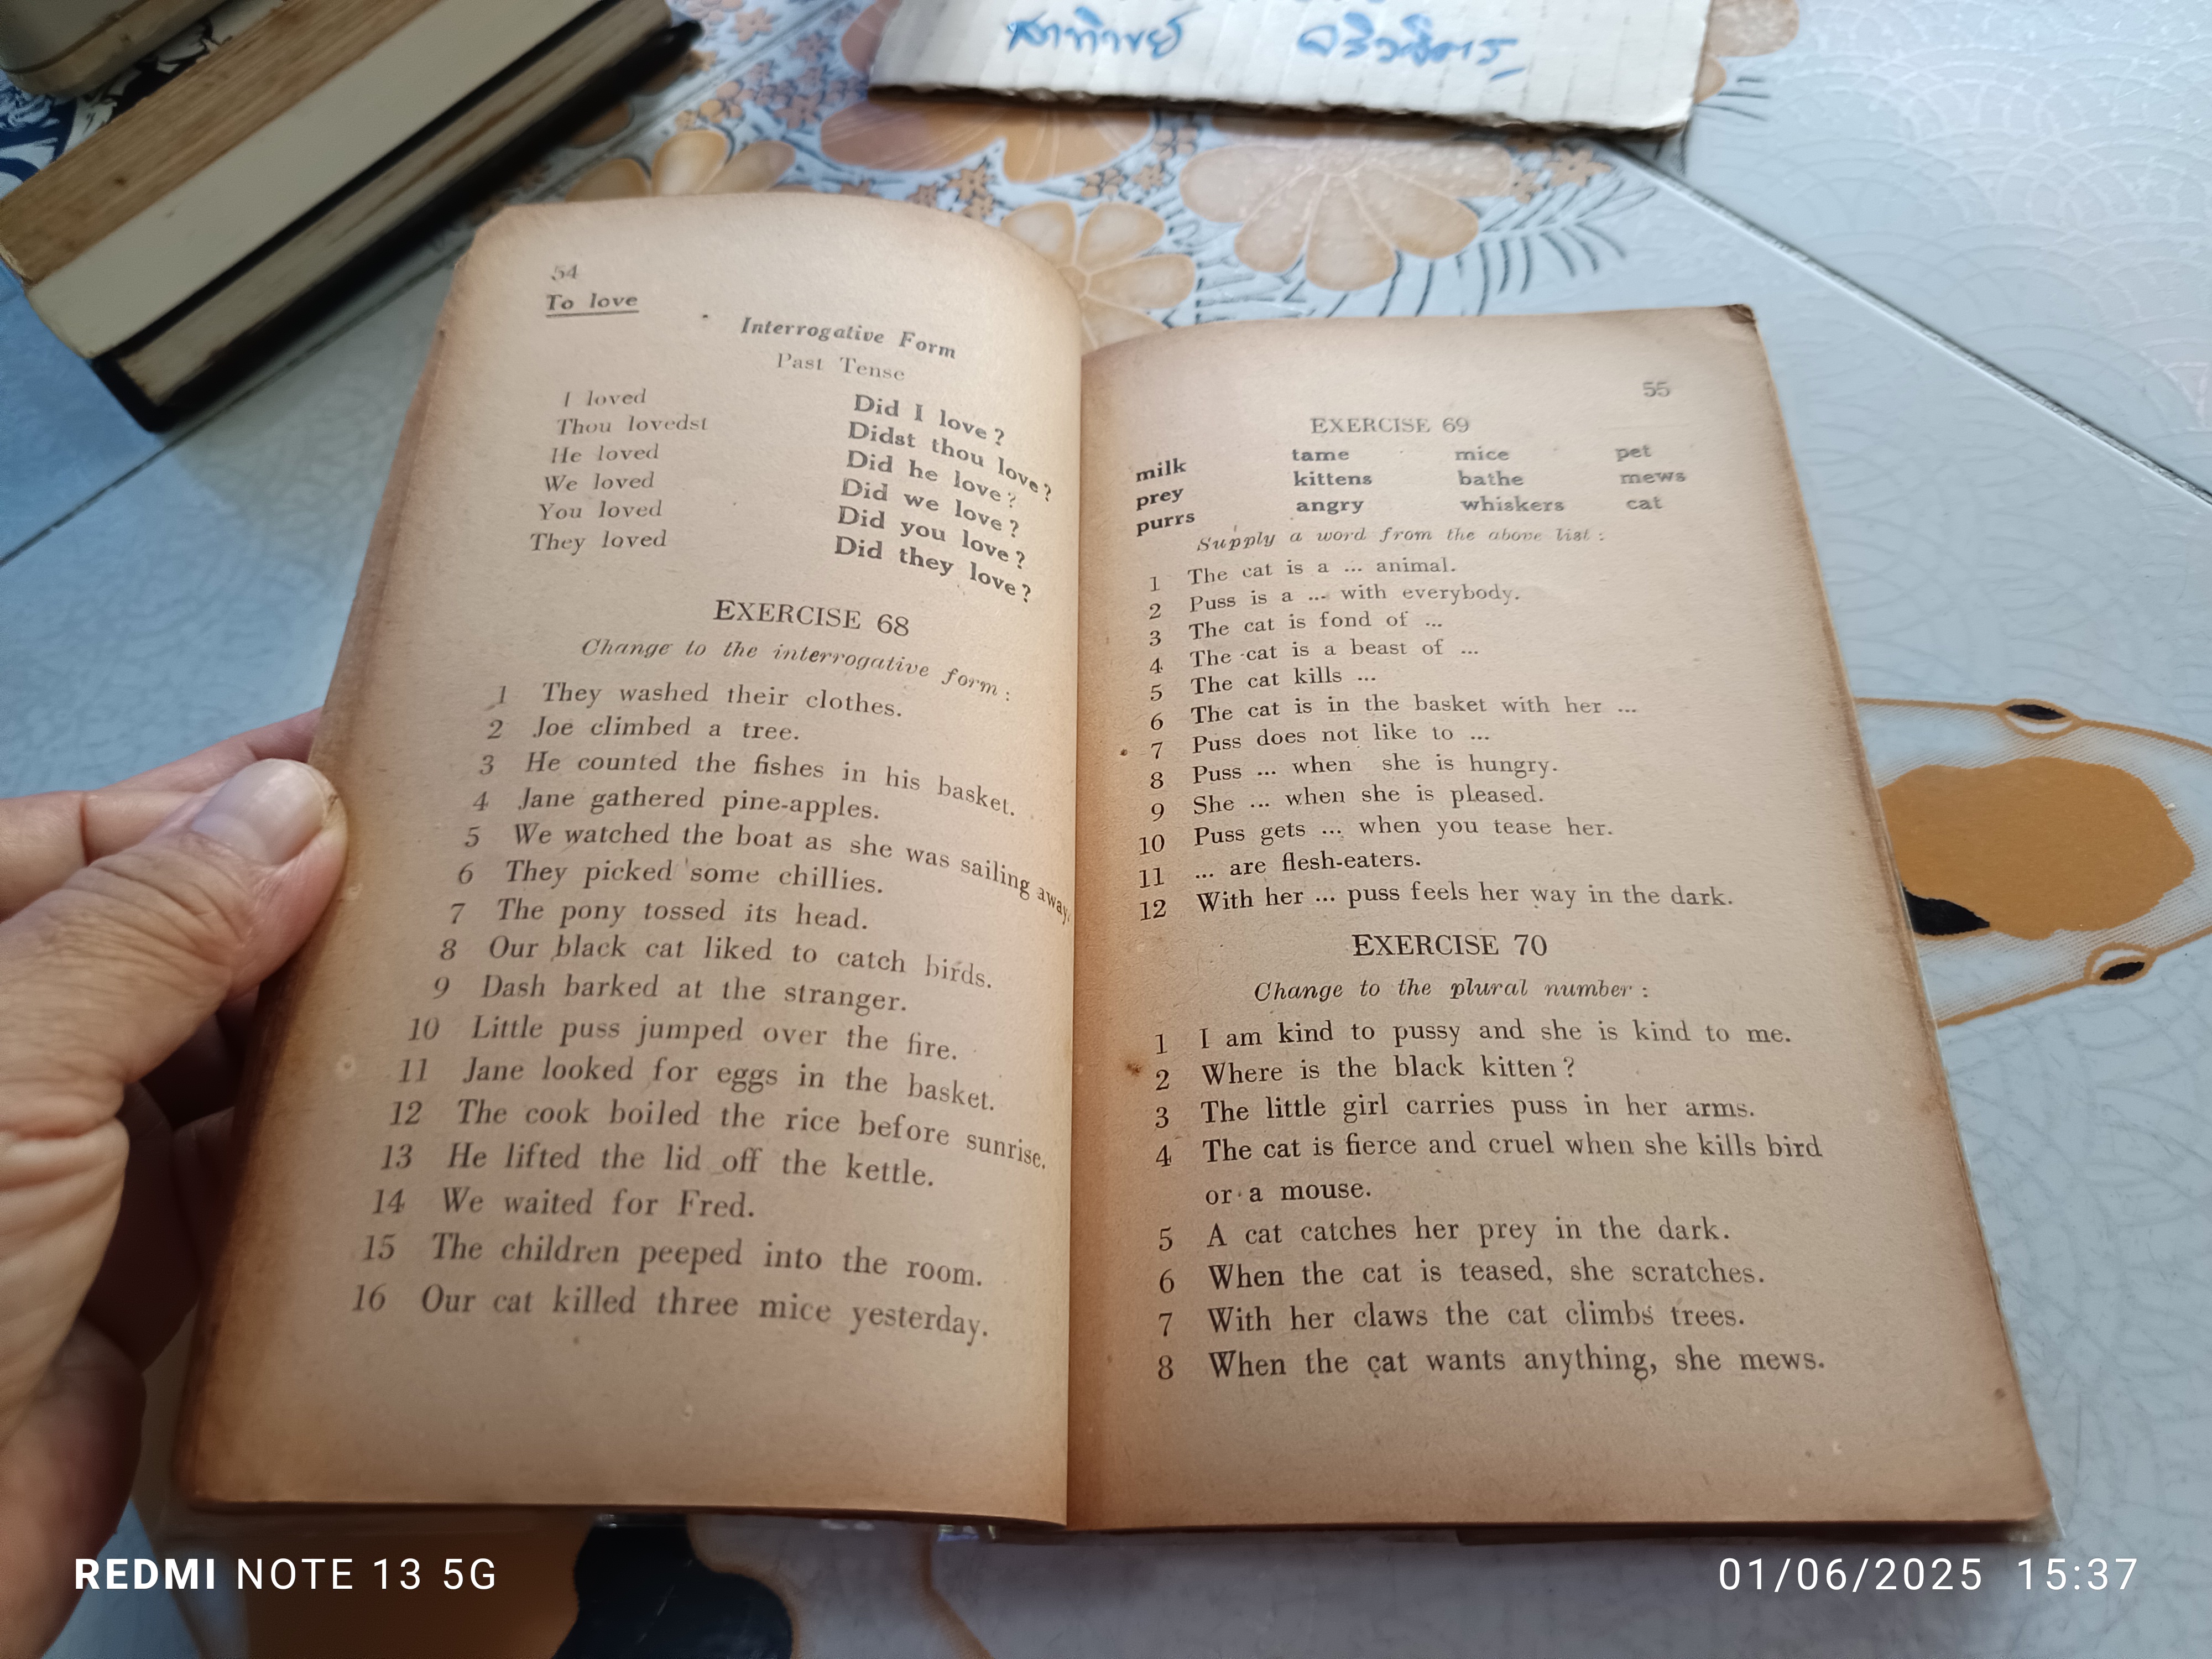 54
To love
Interrogative Form
Past Tense
I loved Did I love?
Thou lovedst Didst thou love?
He loved Did he love?
We loved Did we love?
You loved Did you love?
They loved Did they love?
EXERCISE 68
Change to the interrogative form:
1 They washed their clothes.
2 Joe climbed a tree.
3 He counted the fishes in his basket.
4 Jane gathered pine-apples.
5 We watched the boat as she was sailing away.
6 They picked some chillies.
7 The pony tossed its head.
8 Our black cat liked to catch birds.
9 Dash barked at the stranger.
10 Little puss jumped over the fire.
11 Jane looked for eggs in the basket.
12 The cook boiled the rice before sunrise.
13 He lifted the lid off the kettle.
14 We waited for Fred.
15 The children peeped into the room.
16 Our cat killed three mice yesterday.
55
EXERCISE 69
milk tame mice pet
prey kittens bathe mews
purrs angry whiskers cat
Supply a word from the above list:
1 The cat is a ... animal.
2 Puss is a ... with everybody.
3 The cat is fond of ...
4 The cat is a beast of ...
5 The cat kills ...
6 The cat is in the basket with her ...
7 Puss does not like to ...
8 Puss ... when she is hungry.
9 She ... when she is pleased.
10 Puss gets ... when you tease her.
11 ... are flesh-eaters.
12 With her ... puss feels her way in the dark.
EXERCISE 70
Change to the plural number:
1 I am kind to pussy and she is kind to me.
2 Where is the black kitten?
3 The little girl carries puss in her arms.
4 The cat is fierce and cruel when she kills bird
or a mouse.
5 A cat catches her prey in the dark.
6 When the cat is teased, she scratches.
7 With her claws the cat climbs trees.
8 When the cat wants anything, she mews.
REDMI NOTE 13 5G
01/06/2025 15:37